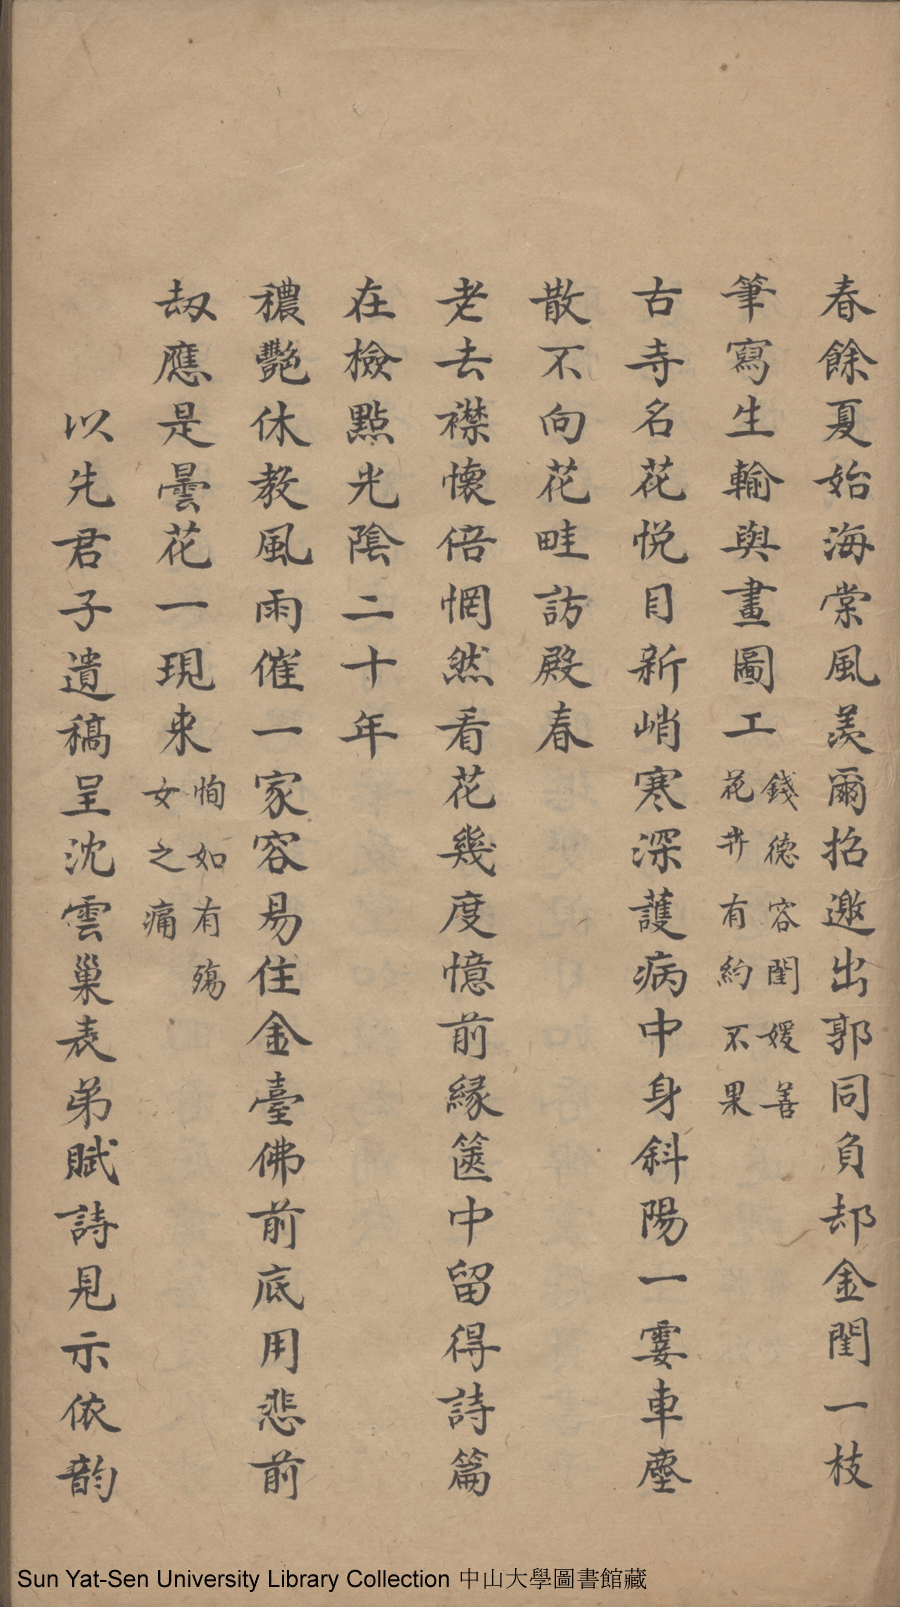 春餘夏始海棠風羨爾招邀出郭同負却金閨一枝
筆寫生輸與畫圖工錢德容閨媛善花卉有約不果
古寺名花悅目新峭寒深護病中身斜陽一霎車塵
散不向花畦訪殿春
老去襟懷倍惘然看花幾度憶前緣篋中留得詩篇
在檢點光陰二十年
穠艷休教風雨催一家容易住金臺佛前底用悲前
刼應是曇花一現来恂如有殤女之痛
以先君子遺稿呈沈雲巢表弟賦詩見示依韵
Sun Yat-Sen University Library Collection 中山大學圖書館藏